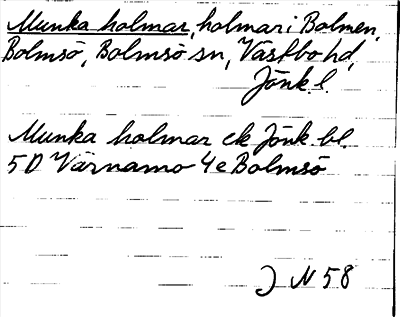 Munka holmar, holmar i Bolmen,
Bolmsö, Bolmsö sn, Västbo hd,
Jönk. l.
Munka holmar ek Jönk. bl.
5D Värnamo 4e Bolmsö
J N 58